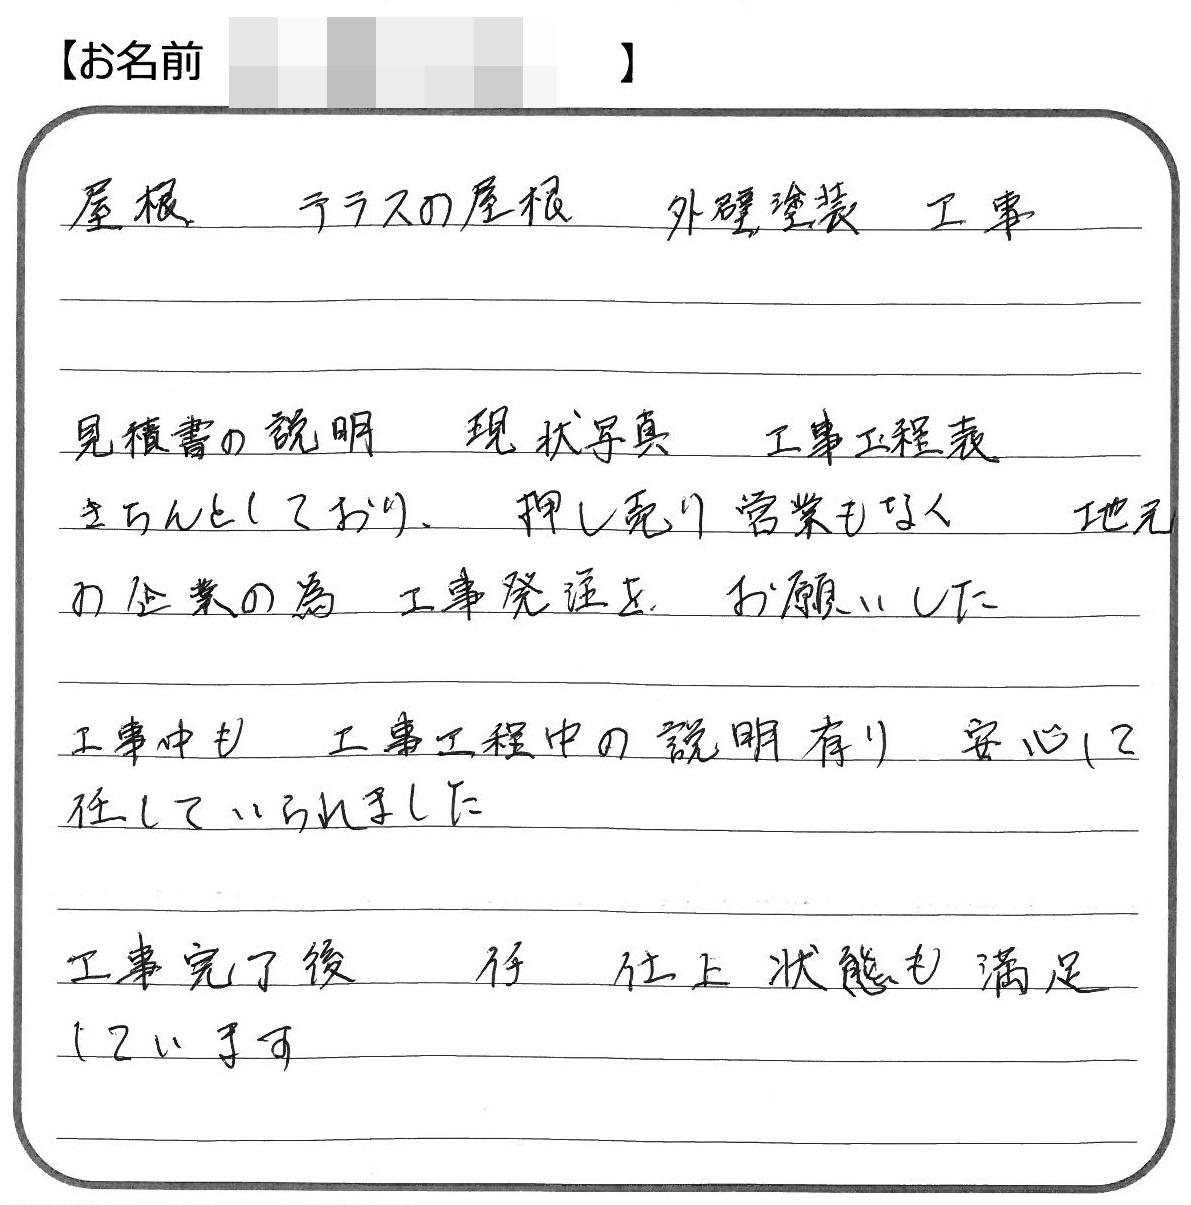 【お名前 】
屋根 テラスの屋根 外壁塗装 工事
見積書の説明 現状写真 工事工程表
きちんとしており、 押し売り営業もなく 地元
の企業の為 工事発注を お願いした
工事中も 工事工程中の説明有り 安心して
任していられました
工事完了後 仕上状態も満足
しています